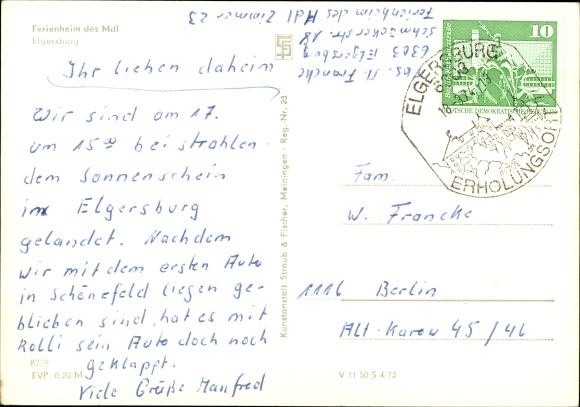 Ferienheim des MdI
Elgersburg
Ihr lieben daheim
Wir sind am 17.
um 15⁰⁰ bei strahlen-
dem Sonnenschein
in Elgersburg
gelandet. Nachdem
wir mit dem ersten Auto
in Schönefeld liegen ge-
blieben sind, hat es mit
Rolli sein Auto doch noch
geklappt.
Viele Grüße Manfred
8259
EVP 0,20 M
Kunstanstalt Straub & Fischer, Meiningen - Reg.-Nr. 23
Abs. M. Francke
6303 Elgersburg
Schmücker str. 18
Ferienheim des MdI Zimmer 23
10
DEUTSCHE DEMOKRATISCHE REPUBLIK
ELGERSBURG
6303
ERHOLUNGSORT
Fam.
W. Francke
1116 Berlin
Alt-Karow 45/46
V 11 50 S 4'73